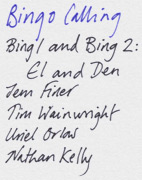 Bingo Calling
Bing 1 and Bing 2:
El and Den
Jem Finer
Tim Wainwright
Uriel Orlow
Nathan Kelly